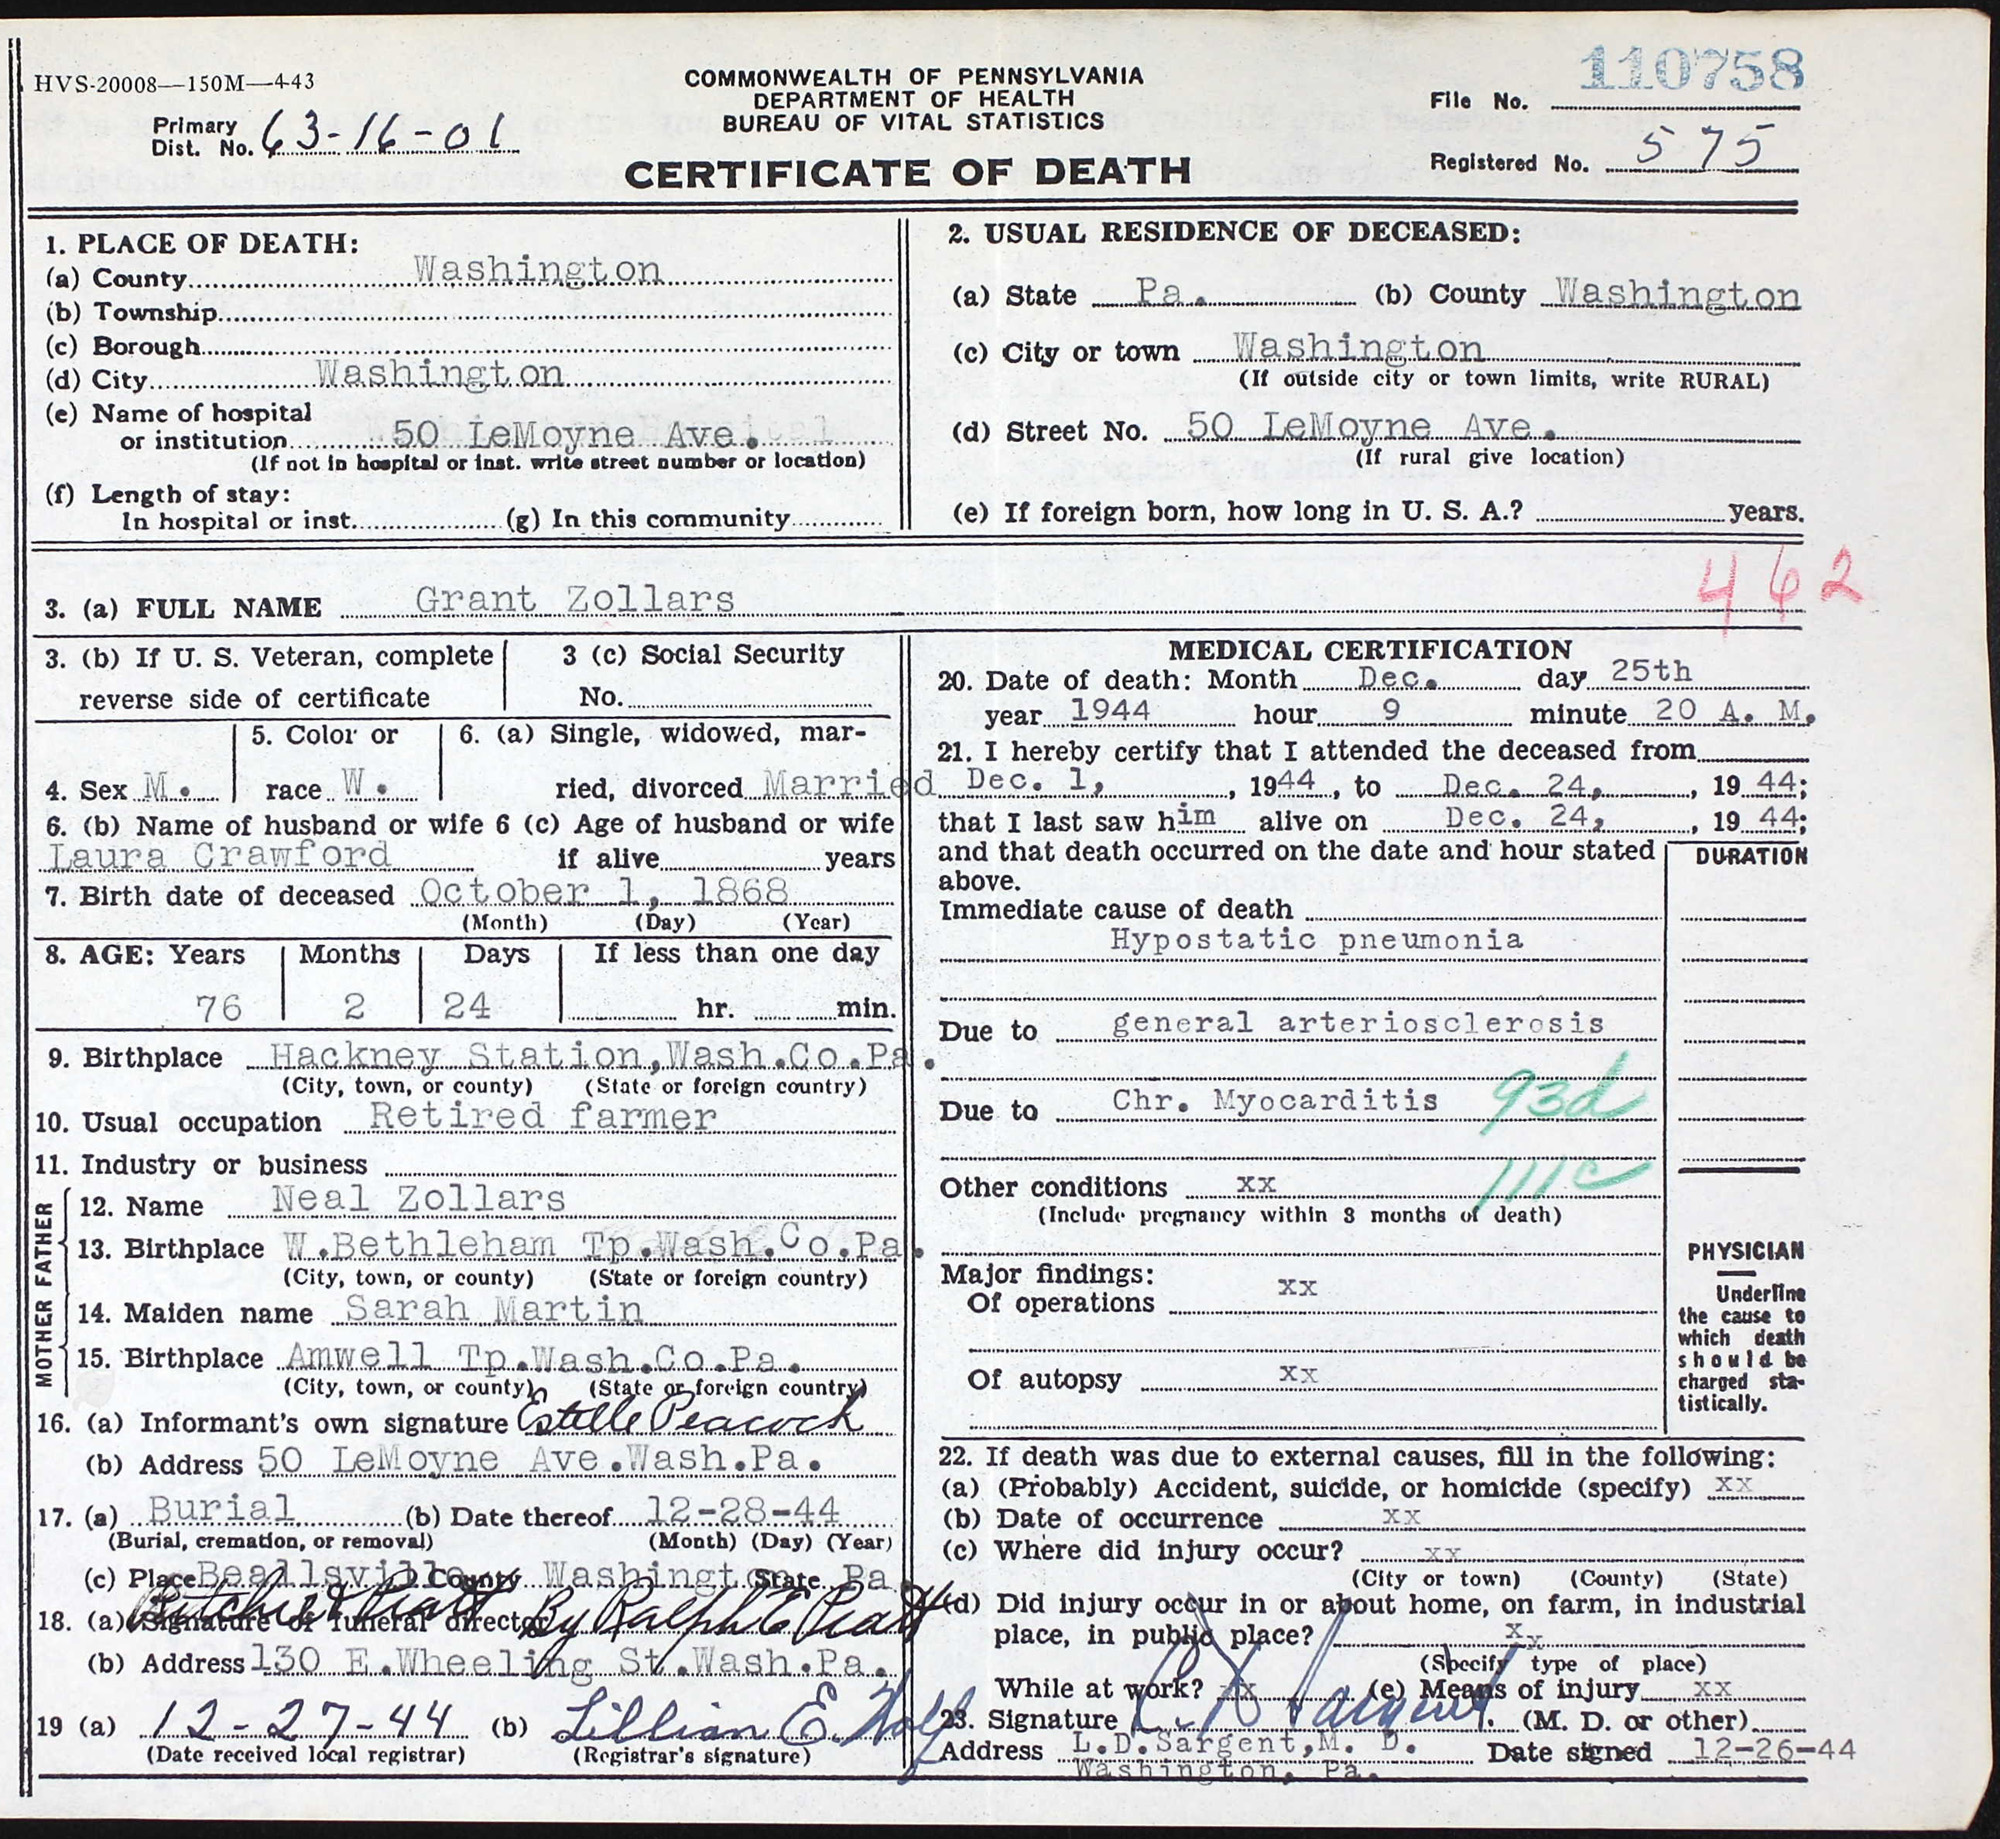 HVS-20008—150M—4-43
COMMONWEALTH OF PENNSYLVANIA
DEPARTMENT OF HEALTH
BUREAU OF VITAL STATISTICS
CERTIFICATE OF DEATH
Primary
Dist. No. 63-16-01
110758
File No.
Registered No. 575
1. PLACE OF DEATH:
(a) County Washington
(b) Township
(c) Borough
(d) City Washington
(e) Name of hospital
or institution 50 LeMoyne Ave.
(If not in hospital or inst. write street number or location)
(f) Length of stay:
In hospital or inst. (g) In this community
2. USUAL RESIDENCE OF DECEASED:
(a) State Pa. (b) County Washington
(c) City or town Washington
(If outside city or town limits, write RURAL)
(d) Street No. 50 LeMoyne Ave.
(If rural give location)
(e) If foreign born, how long in U. S. A.? years.
462
3. (a) FULL NAME Grant Zollars
3. (b) If U. S. Veteran, complete
reverse side of certificate
3 (c) Social Security
No.
4. Sex M.
5. Color or
race W.
6. (a) Single, widowed, mar-
ried, divorced Married
6. (b) Name of husband or wife 6 (c) Age of husband or wife
Laura Crawford if alive years
7. Birth date of deceased October 1, 1868
(Month) (Day) (Year)
8. AGE: Years Months Days If less than one day
76 2 24 hr. min.
9. Birthplace Hackney Station,Wash.Co.Pa.
(City, town, or county) (State or foreign country)
10. Usual occupation Retired farmer
11. Industry or business
FATHER
12. Name Neal Zollars
13. Birthplace W.Bethleham Tp.Wash.Co.Pa.
(City, town, or county) (State or foreign country)
MOTHER
14. Maiden name Sarah Martin
15. Birthplace Amwell Tp.Wash.Co.Pa.
(City, town, or county) (State or foreign country)
16. (a) Informant's own signature Estelle Peacock
(b) Address 50 LeMoyne Ave.Wash.Pa.
17. (a) Burial (b) Date thereof 12-28-44
(Burial, cremation, or removal) (Month) (Day) (Year)
(c) Place Beallsville County Washington State Pa.
18. (a) Signature of funeral director By Ralph E Piatt
(b) Address 130 E.Wheeling St.Wash.Pa.
19 (a) 12-27-44 (b) Lillian E.
(Date received local registrar) (Registrar's signature)
MEDICAL CERTIFICATION
20. Date of death: Month Dec. day 25th
year 1944 hour 9 minute 20 A. M.
21. I hereby certify that I attended the deceased from
Dec. 1, , 1944, to Dec. 24, , 19 44;
that I last saw him alive on Dec. 24, , 19 44;
and that death occurred on the date and hour stated
above.
DURATION
Immediate cause of death
Hypostatic pneumonia
Due to general arteriosclerosis
Due to Chr. Myocarditis 93d
111c
Other conditions xx
(Include pregnancy within 3 months of death)
Major findings:
Of operations xx
Of autopsy xx
PHYSICIAN
Underline
the cause to
which death
should be
charged sta-
tistically.
22. If death was due to external causes, fill in the following:
(a) (Probably) Accident, suicide, or homicide (specify) xx
(b) Date of occurrence xx
(c) Where did injury occur? xx
(City or town) (County) (State)
(d) Did injury occur in or about home, on farm, in industrial
place, in public place? xx
(Specify type of place)
While at work? xx (e) Means of injury xx
23. Signature Sargent. (M. D. or other)
Address L.D.Sargent,M. D. Date signed 12-26-44
Washington, Pa.